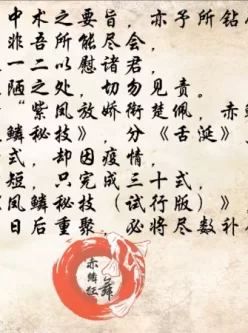 中术之要旨，亦予所钻
非吾所能尽会，
一二以慰诸君，
陋之处，切勿见责。
“紫凤放娇衔楚佩，赤
鳞秘技》，分《舌涎》
式，却因疫情，
短，只完成三十式，
凤鳞秘技（试行版）》
日后重聚，必将尽数补
赤鳞经
舞